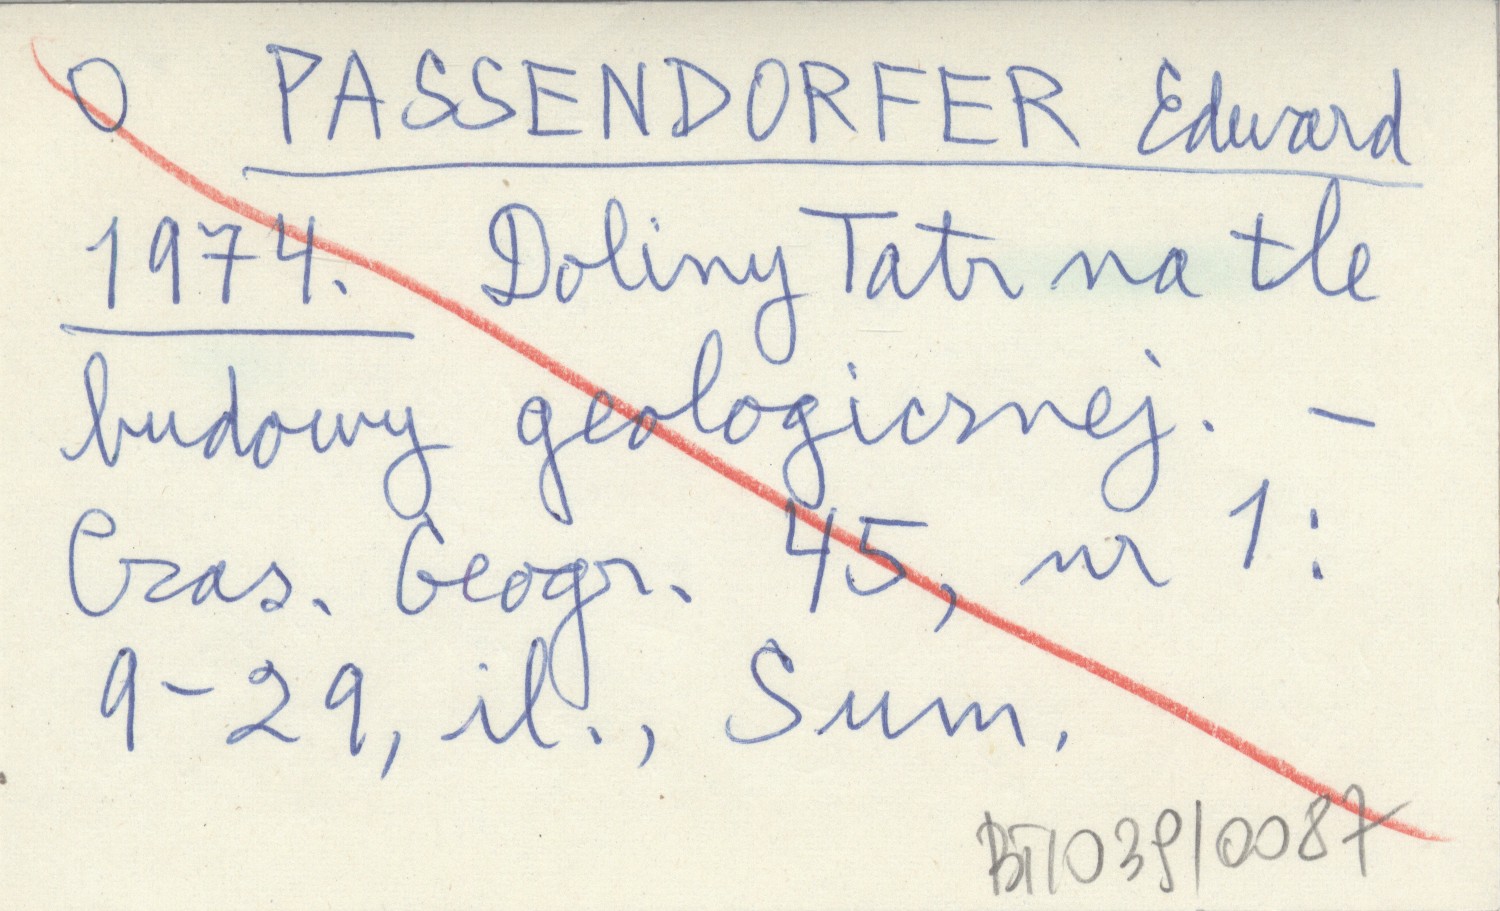 O PASSENDORFER Edward
1974. Doliny Tatr na tle
budowy geologicznej. –
Czas. Geogr. 45, nr 1:
9–29, il., Sum.
BT/039/0087